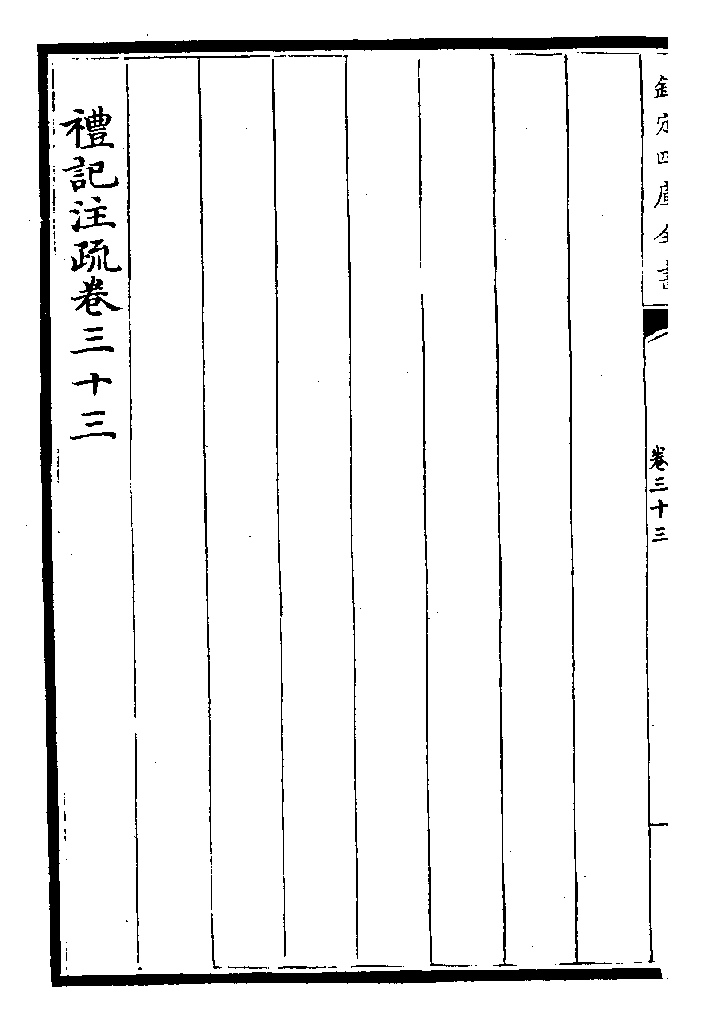 欽定四庫全書
卷三十三
禮記注疏卷三十三